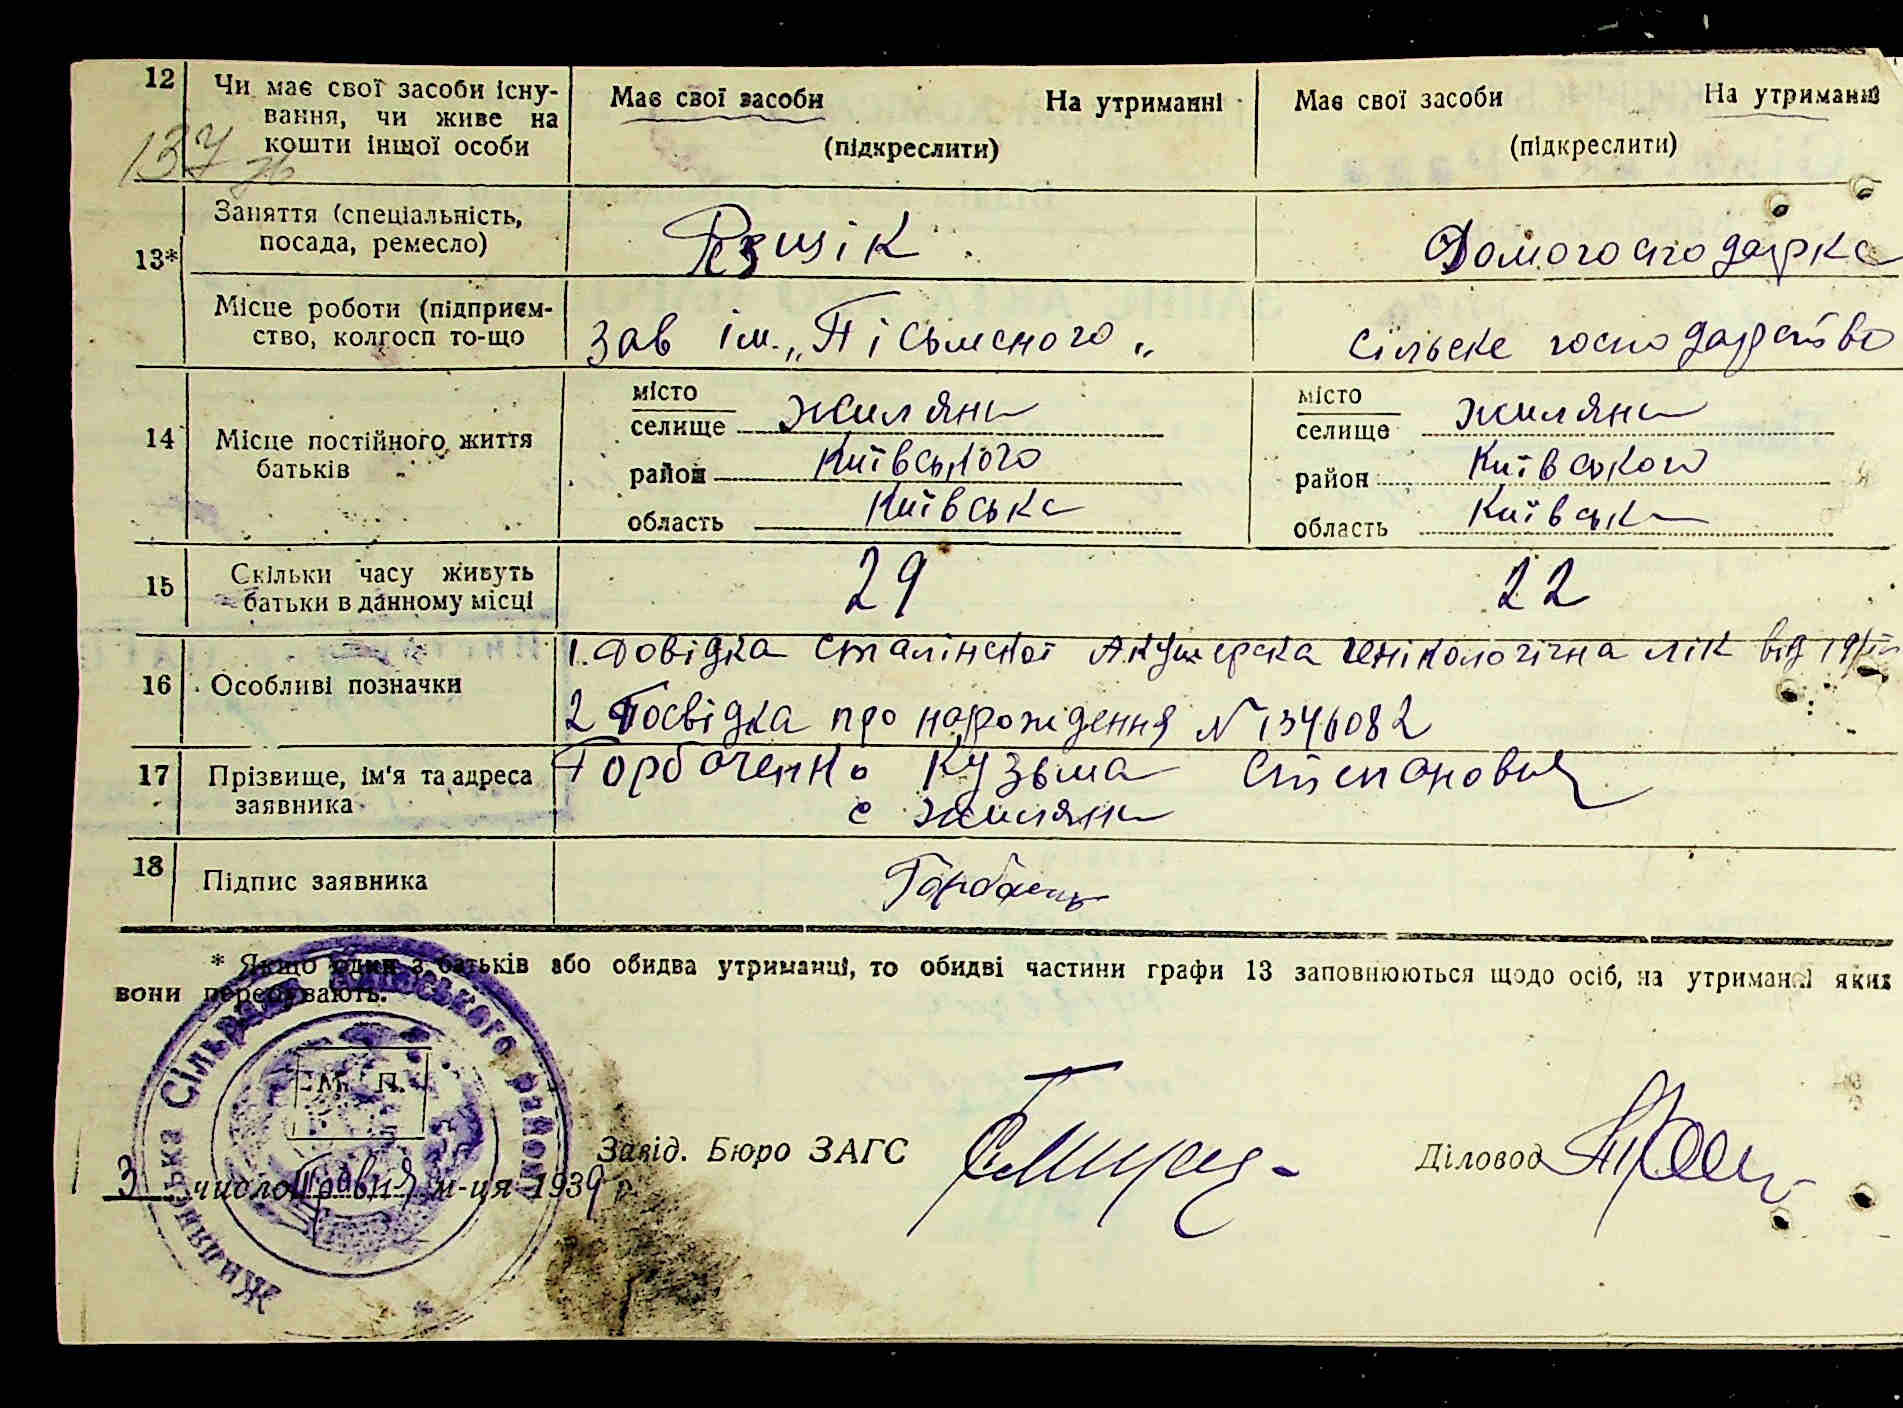 12 Чи має свої засоби існу-
вання, чи живе на
кошти іншої особи
Має свої засоби На утриманні
(підкреслити)
Має свої засоби На утриманні
(підкреслити)
137
13* Заняття (спеціальність,
посада, ремесло)
Рєзщік
Домогосподарка
Місце роботи (підприєм-
ство, колгосп то-що
Зав ім. „Пісьменого„
сільске господарство
14 Місце постійного життя
батьків
місто
селище Жиляни
район Київського
область Київська
місто
селище Жиляни
район Київського
область Київська
15 Скільки часу живуть
батьки в данному місці
29 22
16 Особливі позначки
1. Довідка Сталінської Акушерска генікологічна лік від
2 Посвідка про нарождення № 1346082
17 Прізвище, ім'я та адреса
заявника
Горбаченко Кузьма Степанович
с Жиляни
18 Підпис заявника
* Якщо один з батьків або обидва утриманці, то обидві частини графи 13 заповнюються щодо осіб, на утриманні яких
вони перебувають.
М. П.
Жилянська Сільрада Київського району
Завід. Бюро ЗАГС
Діловод
3 число Травня м-ця 1939 р.